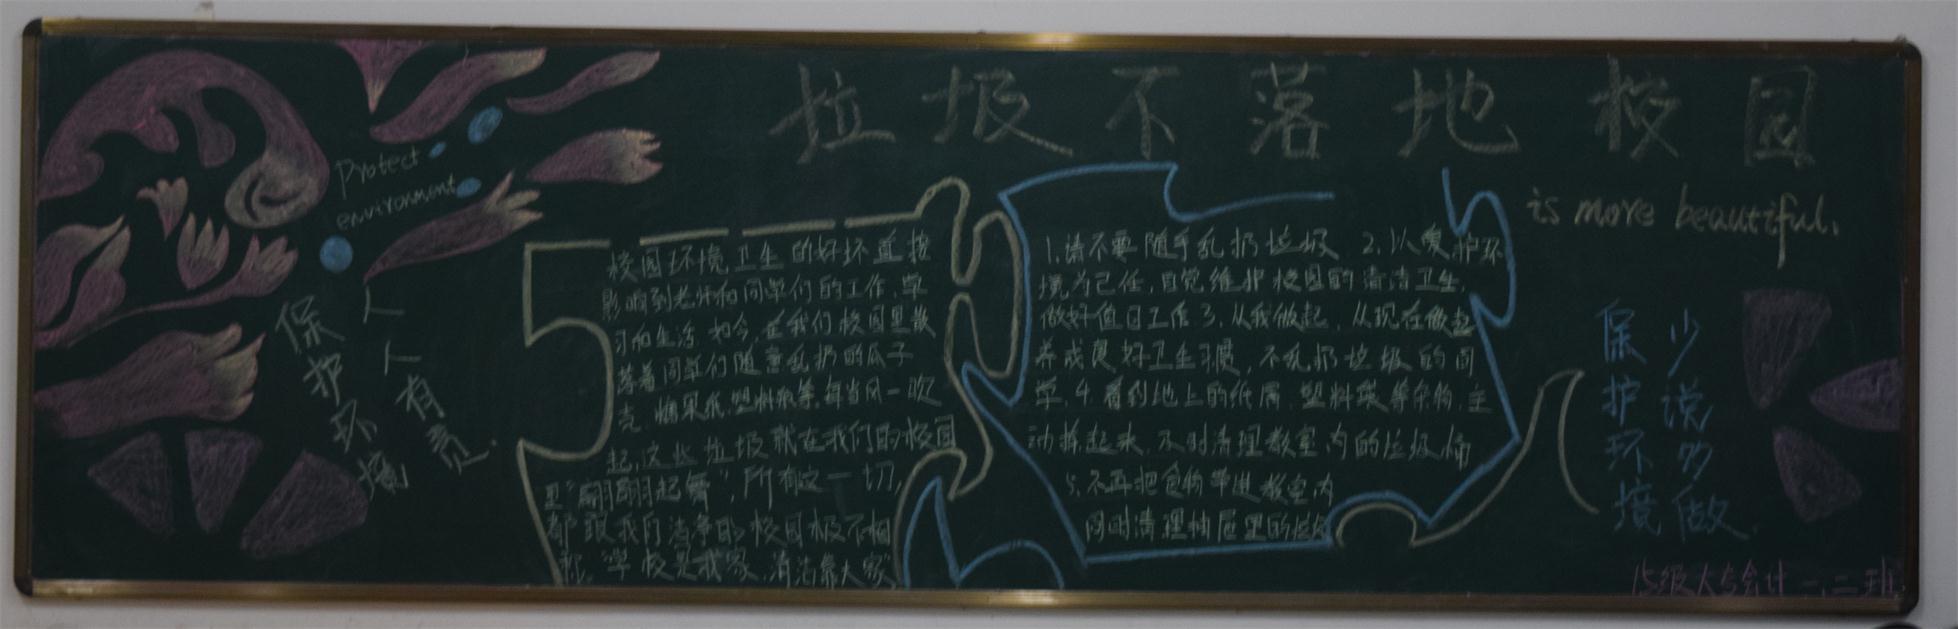 垃圾不落地校园
is more beautiful.
Protect
environment
保护环境
人人有责.
校园环境卫生的好坏直接
影响到老师和同学们的工作,学
习和生活.如今,在我们校园里散
落着同学们随意乱扔的瓜子
壳.糖果纸.塑料瓶等.每当风一吹
起,这些垃圾就在我们的校园
里"翩翩起舞",所有这一切,
都跟我们洁净的校园极不相
称.学校是我家,清洁靠大家
1.请不要随手乱扔垃圾 2.以爱护环
境为己任,自觉维护校园的清洁卫生,
做好值日工作3.从我做起,从现在做起
养成良好卫生习惯,不乱扔垃圾的同
学.4.看到地上的纸屑.塑料袋等杂物,主
动拣起来.及时清理教室内的垃圾桶
5.不再把食物带进教室内
同时清理抽屉里的垃圾
保护环境
少说多做.
15级大专会计一.二班